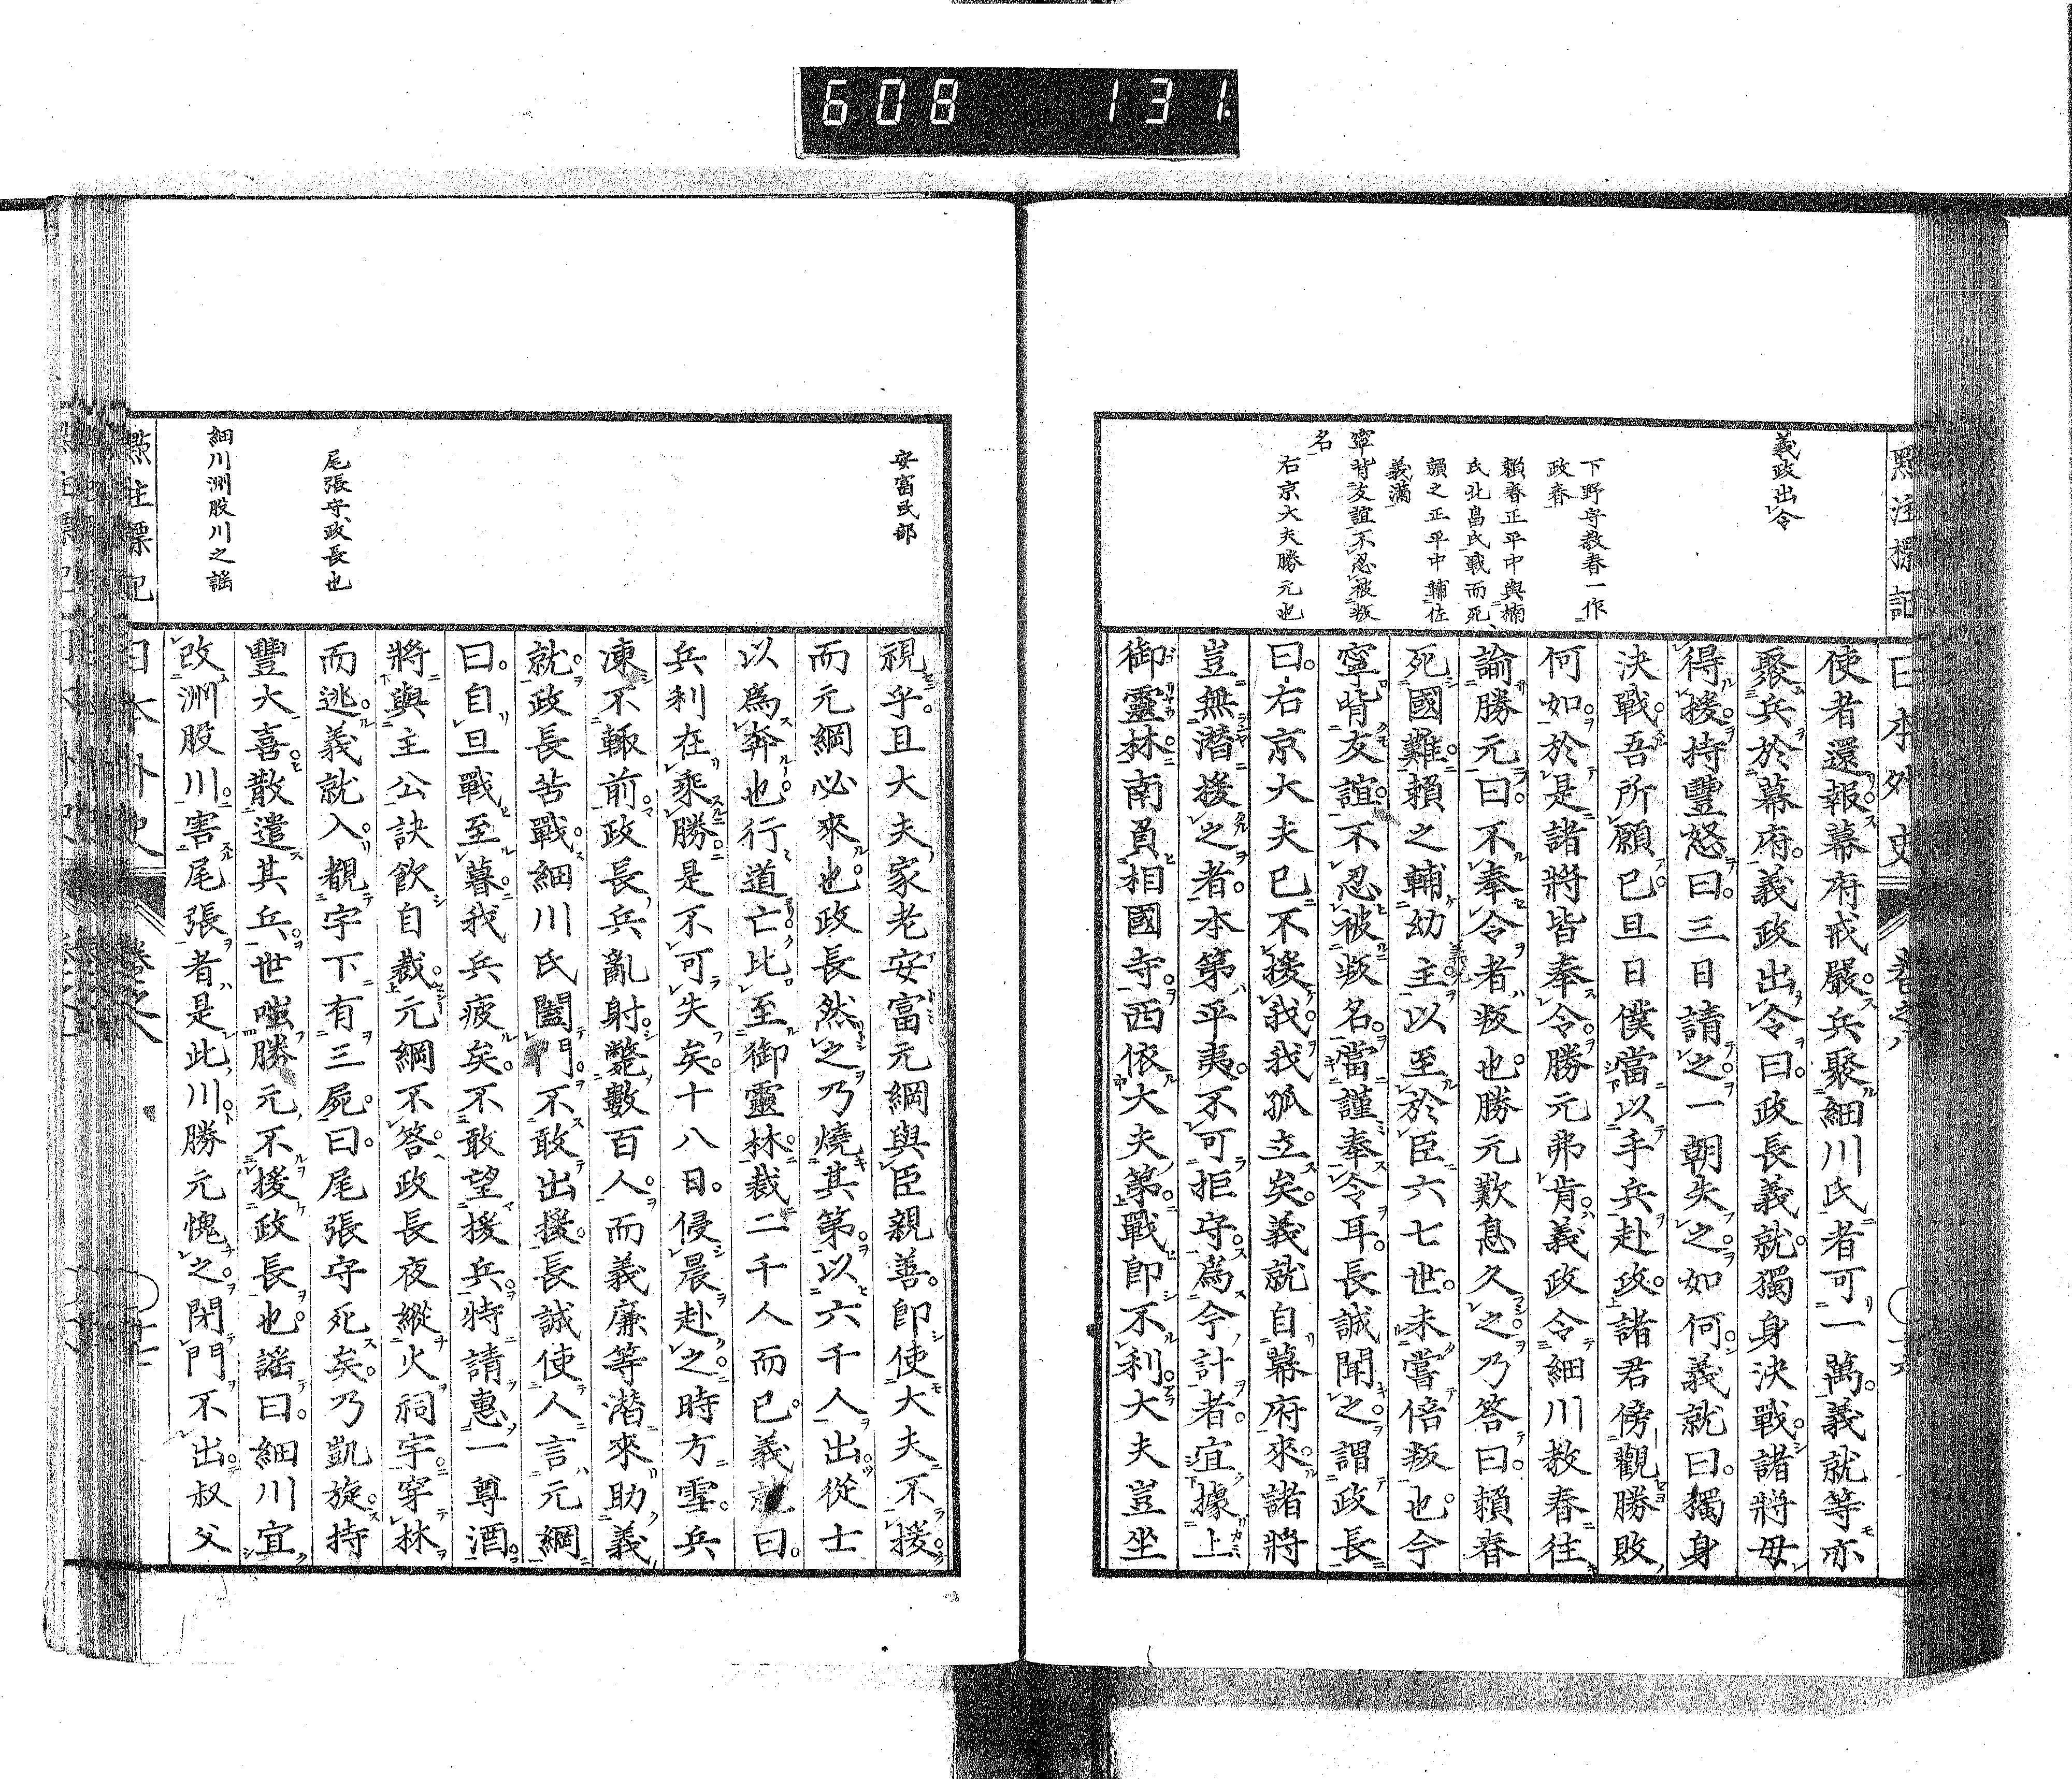 608 131
點注標記
日本外史 卷之八
義政出令
下野守教春一作
政春
賴春正平中與楠
氏北畠氏戰而死、
賴之正平中輔佐
義滿
寧背友誼不忍被叛
名
右京大夫勝元也
使者還報幕府戒嚴兵聚細川氏者可一萬義就等亦
聚兵於幕府義政出令曰政長義就獨身決戰諸將毋
得援持豐怒曰三日請之一朝失之如何義就曰獨身
決戰吾所願已旦日僕當以手兵赴政諸君傍觀勝敗
何如於是諸將皆奉令勝元弗肯義政令細川教春往
諭勝元曰不奉令者叛也勝元歎息久之乃答曰賴春
死國難賴之輔幼主以至於臣六七世未嘗倍叛也今
寧背友誼不忍被叛名當謹奉令耳長誠聞之謂政長
曰右京大夫已不援我我孤立矣義就自幕府來諸將
豈無潛援之者本第平夷不可拒守爲今計者宜據上
御靈林南負相國寺西依大夫第戰卽不利大夫豈坐
安富民部
尾張守政長也
細川洲股川之謠
視乎且大夫家老安富元綱與臣親善卽使大夫不援
而元綱必來也政長然之乃燒其第以六千人出從士
以爲奔也行道亡比至御靈林裁二千人而已義就曰
兵利在乘勝是不可失矣十八日侵晨赴之時方雪兵
凍不輙前政長兵亂射斃數百人而義廉等潛來助義
就政長苦戰細川氏闔門不敢出援長誠使人言元綱
曰自旦戰至暮我兵疲矣不敢望援兵特請惠一尊酒
將與主公訣飲自裁元綱不答政長夜縱火祠宇穿林
而逃義就入覩宇下有三屍曰尾張守死矣乃凱旋持
豐大喜散遣其兵世嗤勝元不援政長也謠曰細川宜
改洲股川害尾張者是此川勝元愧之閉門不出叔父
點注標記
日本外史 卷之八